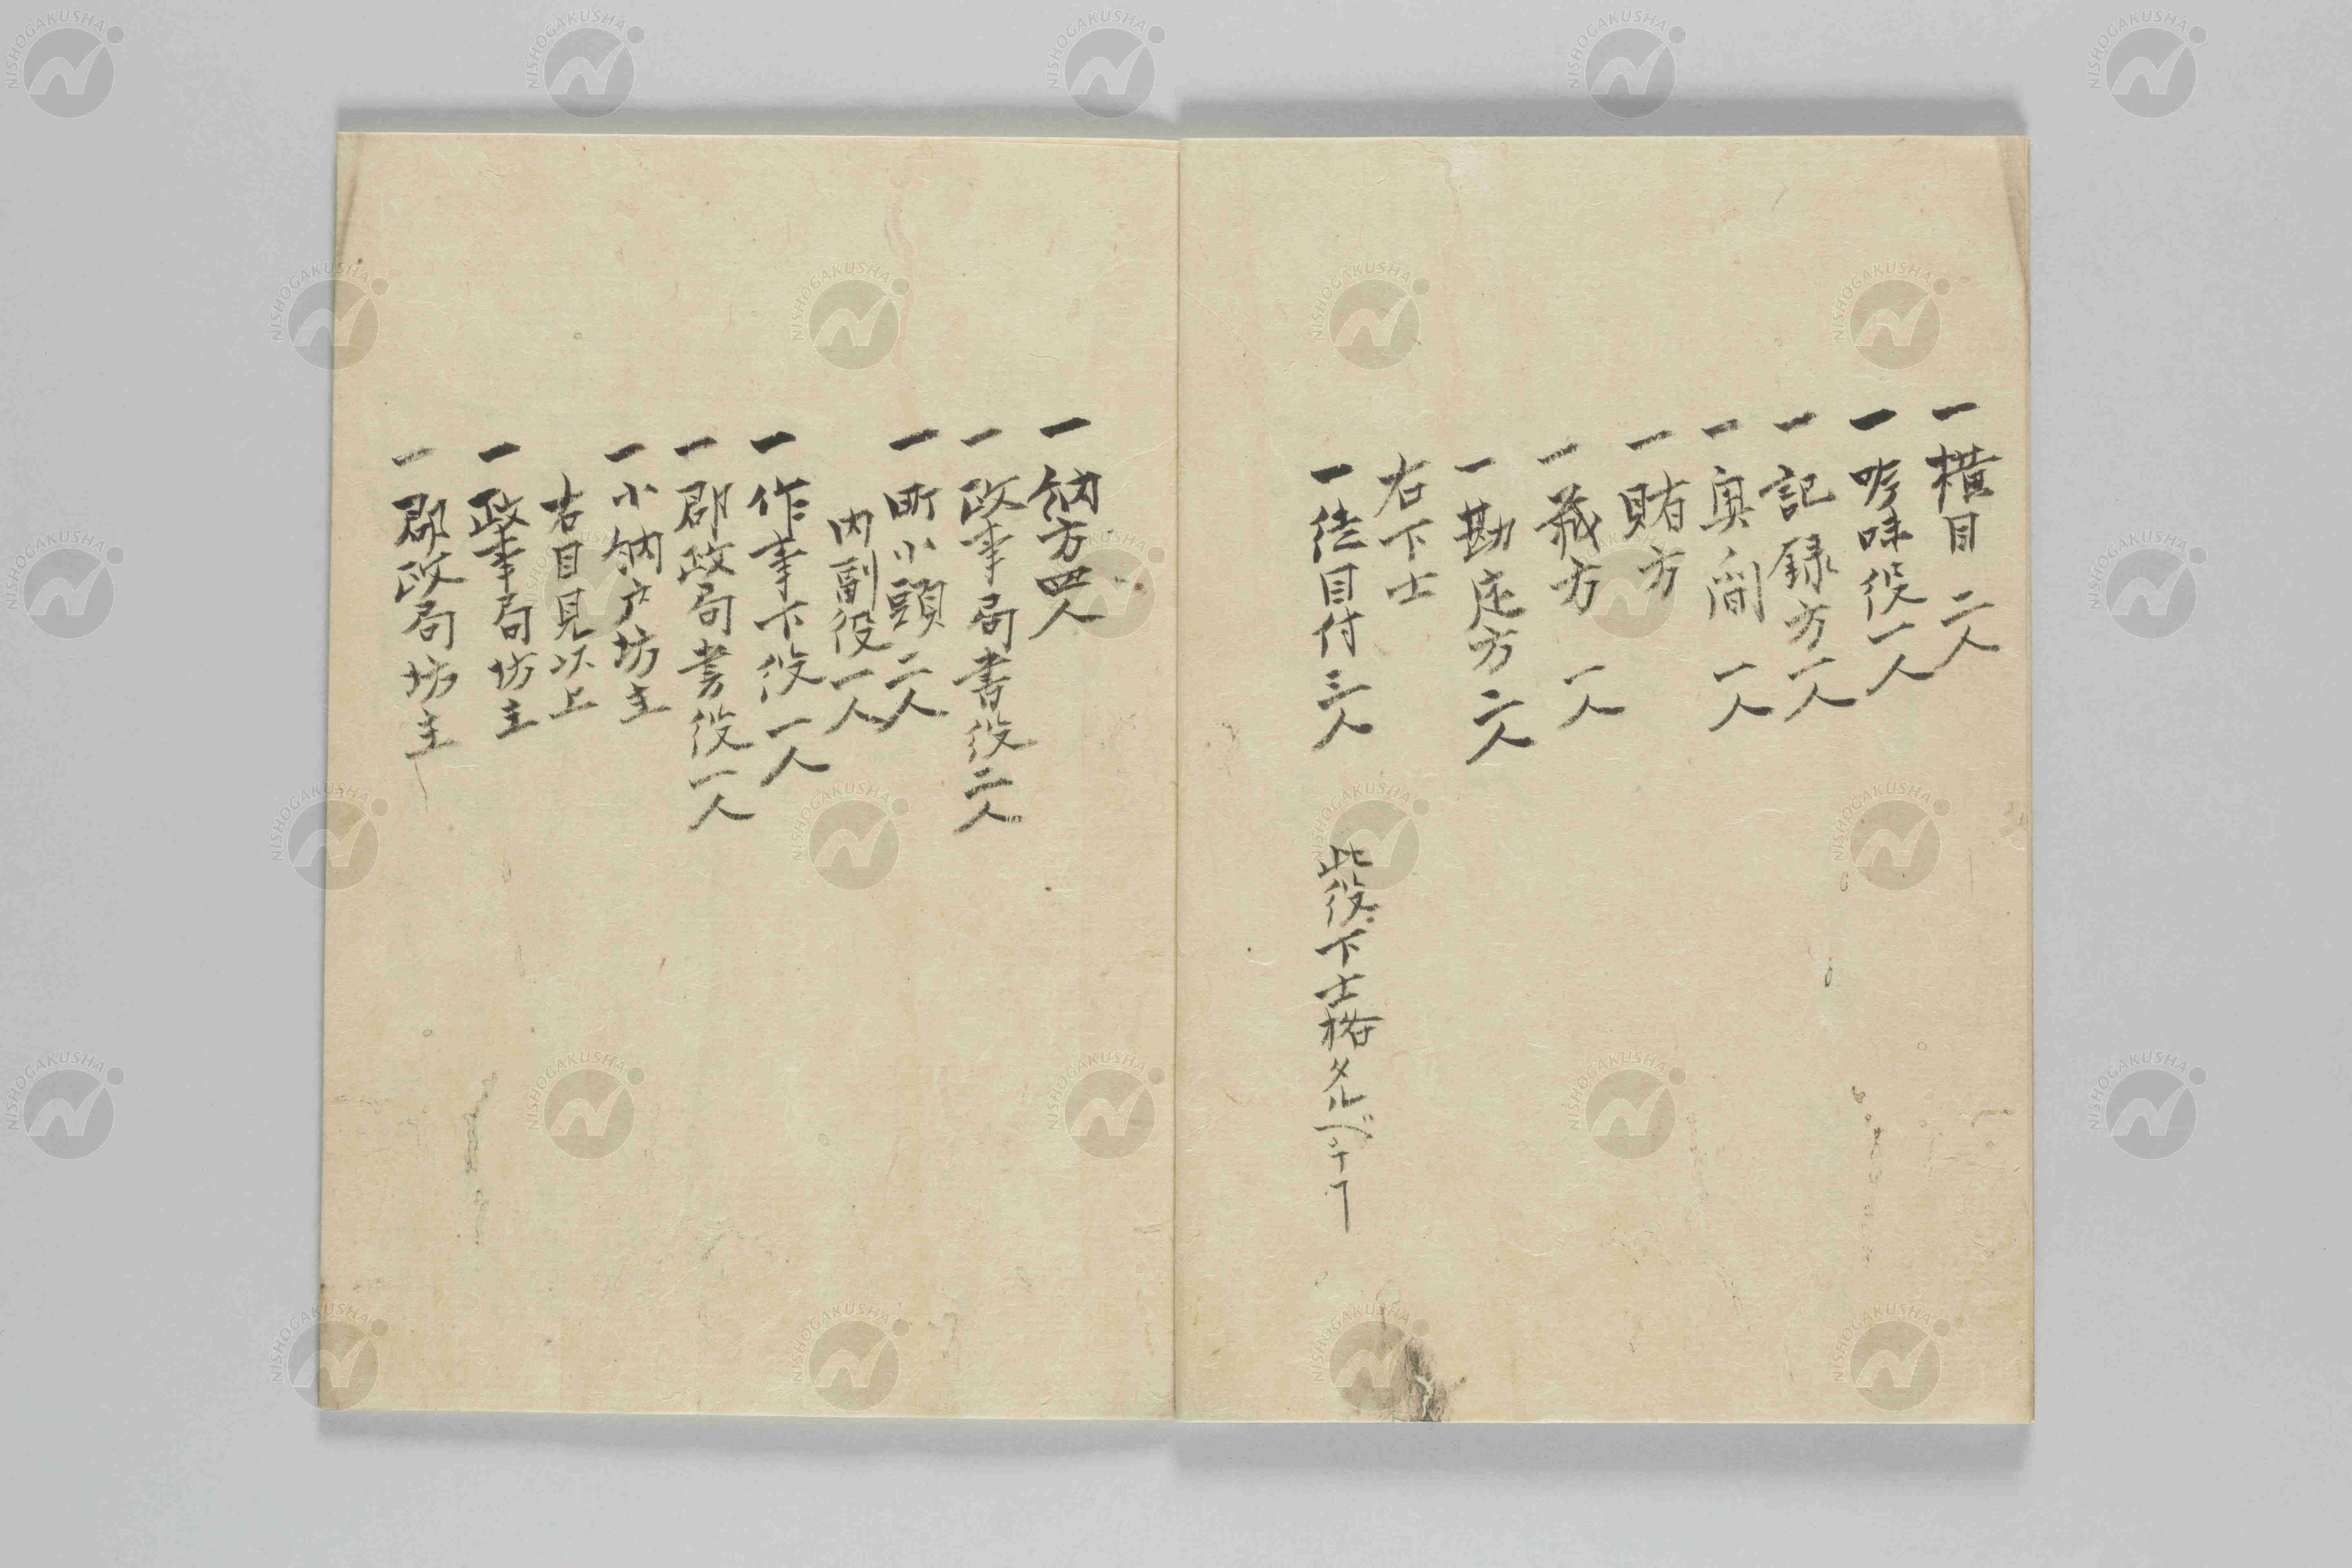 一横目 二人
一吟味役一人
一記録方一人
一奥間 一人
一賄方
一蔵方 一人
一勘定方 二人
右下士
一徒目付 三人 此役下士格タルベキヿ
一納方四人
一政事局書役二人
一町小頭 二人
内副役一人
一作事下役一人
一郡政局書役一人
一小納戸坊主
右目見以上
一政事局坊主
一郡政局坊主
NISHOGAKUSHA